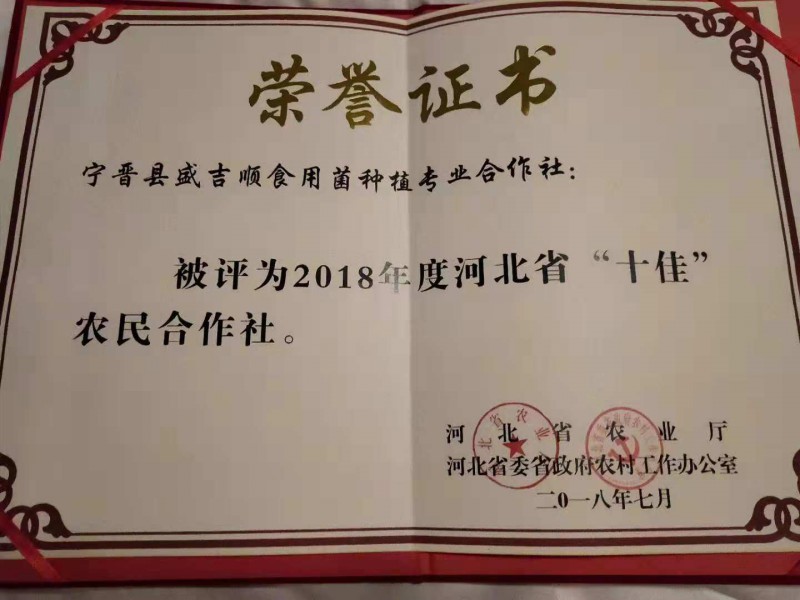 荣誉证书
宁晋县盛吉顺食用菌种植专业合作社：
被评为2018年度河北省“十佳”
农民合作社。
河北省农业厅
河北省委省政府农村工作办公室
二0一八年七月